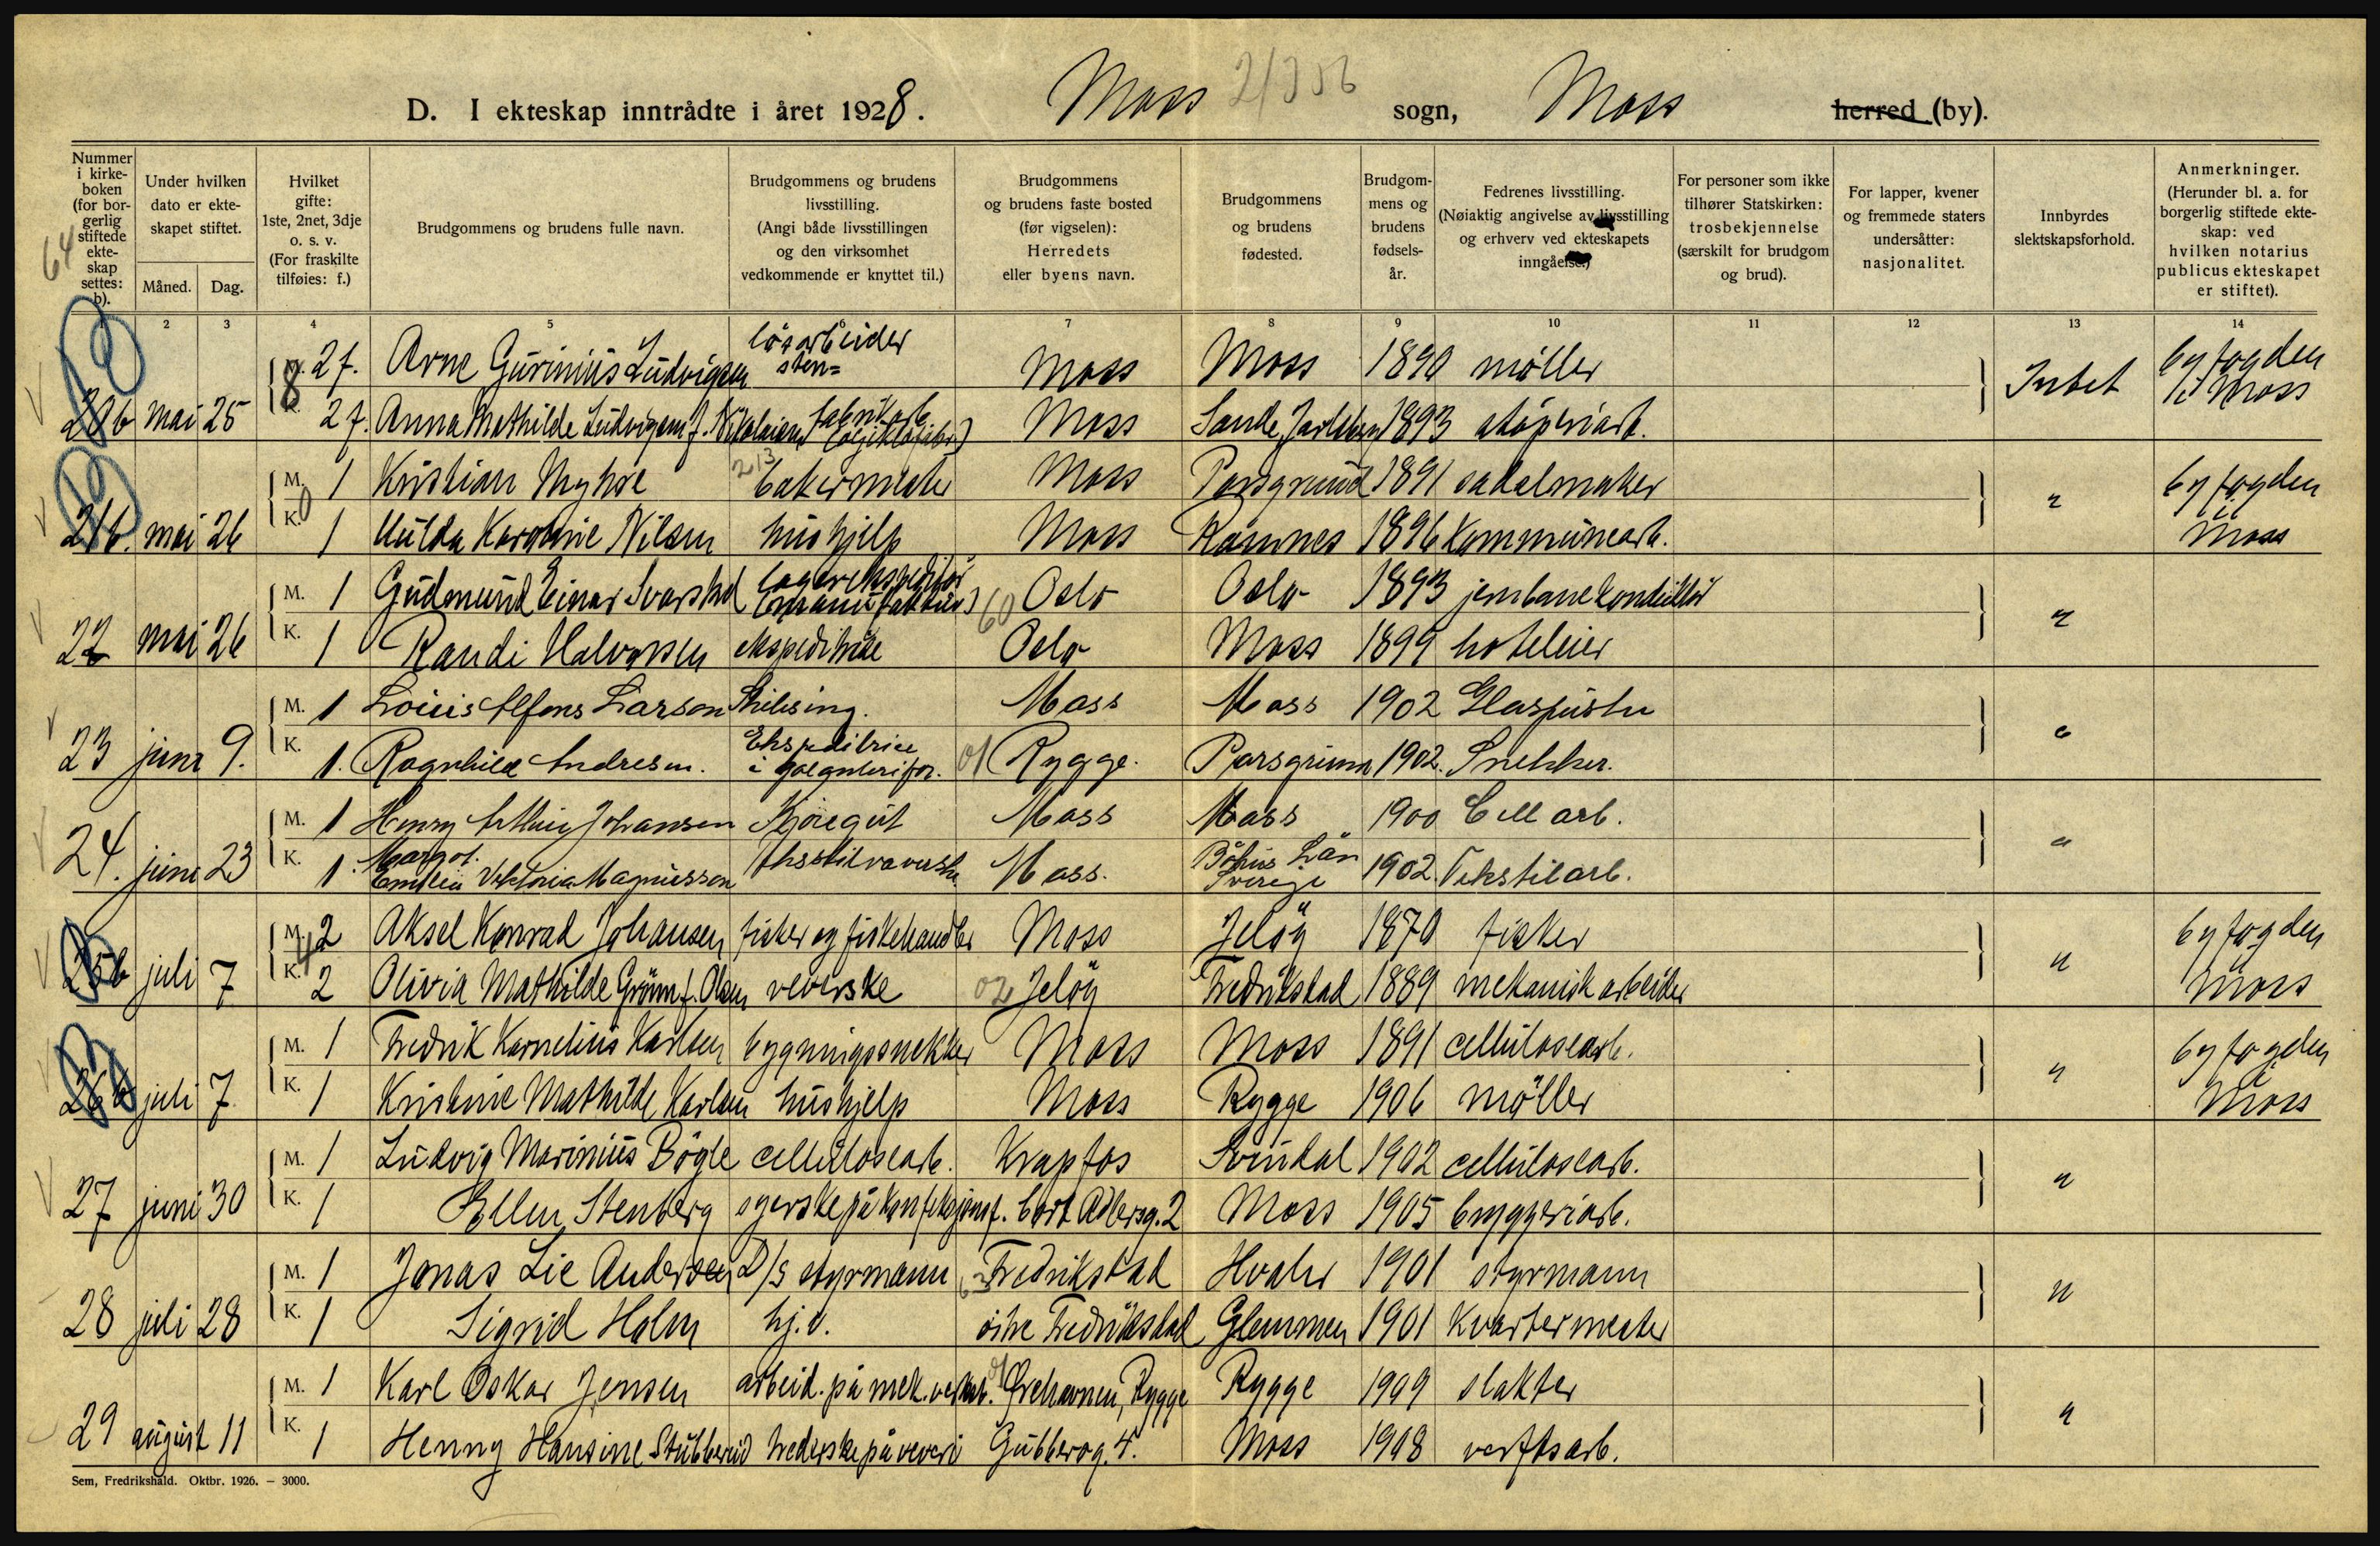 D. I ekteskap inntrådte i året 1928. Moss 21306 sogn, Moss herred (by).
Nummer i kirke-boken (for bor-gerlig stiftede ekte-skap settes: b).
Under hvilken dato er ekte-skapet stiftet.
Måned. Dag.
Hvilket gifte: 1ste, 2net, 3dje o. s. v. (For fraskilte tilføies: f.)
Brudgommens og brudens fulle navn.
Brudgommens og brudens livsstilling. (Angi både livsstillingen og den virksomhet vedkommende er knyttet til.)
Brudgommens og brudens faste bosted (før vigselen): Herredets eller byens navn.
Brudgommens og brudens fødested.
Brudgom-mens og brudens fødsels-år.
Fedrenes livsstilling. (Nøiaktig angivelse av livsstilling og erhverv ved ekteskapets inngåelse.)
For personer som ikke tilhører Statskirken: trosbekjennelse (særskilt for brudgom og brud).
For lapper, kvener og fremmede staters undersåtter: nasjonalitet.
Innbyrdes slektskapsforhold.
Anmerkninger. (Herunder bl. a. for borgerlig stiftede ekte-skap: ved hvilken notarius publicus ekteskapet er stiftet).
64
1 2 3 4 5 6 7 8 9 10 11 12 13 14
M. 2 f. Arne Gurinius Ludvigsen løsarbeider Moss Moss 1890 møller Intet byfogden i Moss
20b mai 25 K. 2 f. Anna Mathilde Ludvigsen f. Nikolaisen fabrikarb. Moss Sande, Jarlsberg 1893 støperiarb.
M. 1 Kristian Myhre 213 bakermester Moss Porsgrund 1891 sadelmaker " byfogden
21b. mai 26 K. 1 Hulda Karoline Nilsen hushjelp Moss Ramnes 1896 Kommunearb. Moss
M. 1 Gudmund Einar Svarstad lagerekspeditør (manufaktur) 60 Oslo Oslo 1893 jernbanekonduktør "
22 mai 26 K. 1 Randi Halvorsen ekspeditrise Oslo Moss 1899 hoteleier
M. 1 Louis Alfons Larson Moss Moss 1902 Glaspuster "
23 juni 9. K. 1. Ragnhild Andresen. Ekspeditrice i 01 Rygge. Porsgrunn 1902. Snekker.
M. 1 Henry Arthur Johansen Kjøregut Moss Moss 1900 Cell arb. "
24. juni 23 K. 1. Margot Emilia Viktoria Magnusson Moss. Bohus Län Sverige 1902. Tekstilarb.
M. 2 Aksel Konrad Johansen fisker og fiskehandler Moss Jeløy 1870 fisker " byfogden
25b juli 7 K. 2 Olivia Mathilde Grönn f. Olsen veverske 02 Jeløy Fredrikstad 1889 mekanisk arbeider Moss
M. 1 Fredrik Kornelius Karlsen bygningssnekker Moss Moss 1891 cellulosearb. " byfogden
26b juli 7 K. 1 Kristine Mathilde Karlsen hushjelp Moss Rygge 1906 møller Moss
M. 1 Ludvig Marinius Bøgle cellulosearb. Krapfos Svindal 1902 cellulosearb. "
27 juni 30 K. 1 Ellen Stenberg syerske på konfeksjonsf. Cort Adlersg. 2 Moss 1905 bryggeriarb.
M. 1 Jonas Lie Andersen D/S styrmann Fredrikstad Hvaler 1901 styrmann "
28 juli 28 K. 1 Sigrid Holm hj.d. Fredrikstad Glemmen 1901 Kvartermester
M. 1 Karl Oskar Jensen arbeid. på mek. verkst. 01 Ørehavnen, Rygge Rygge 1909 slakter "
29 august 11 K. 1 Henny Hansine Stubberud trederske på veveri Gudesg. 4. Moss 1908 verftsarb.
Sem, Fredrikshald. Oktbr. 1926. – 3000.